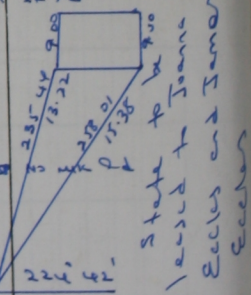 9.00
9.00
235.44
13.22
258.01
15.35
224° 42'
State to be
leased to Joanna
Eccles and James
Eccles